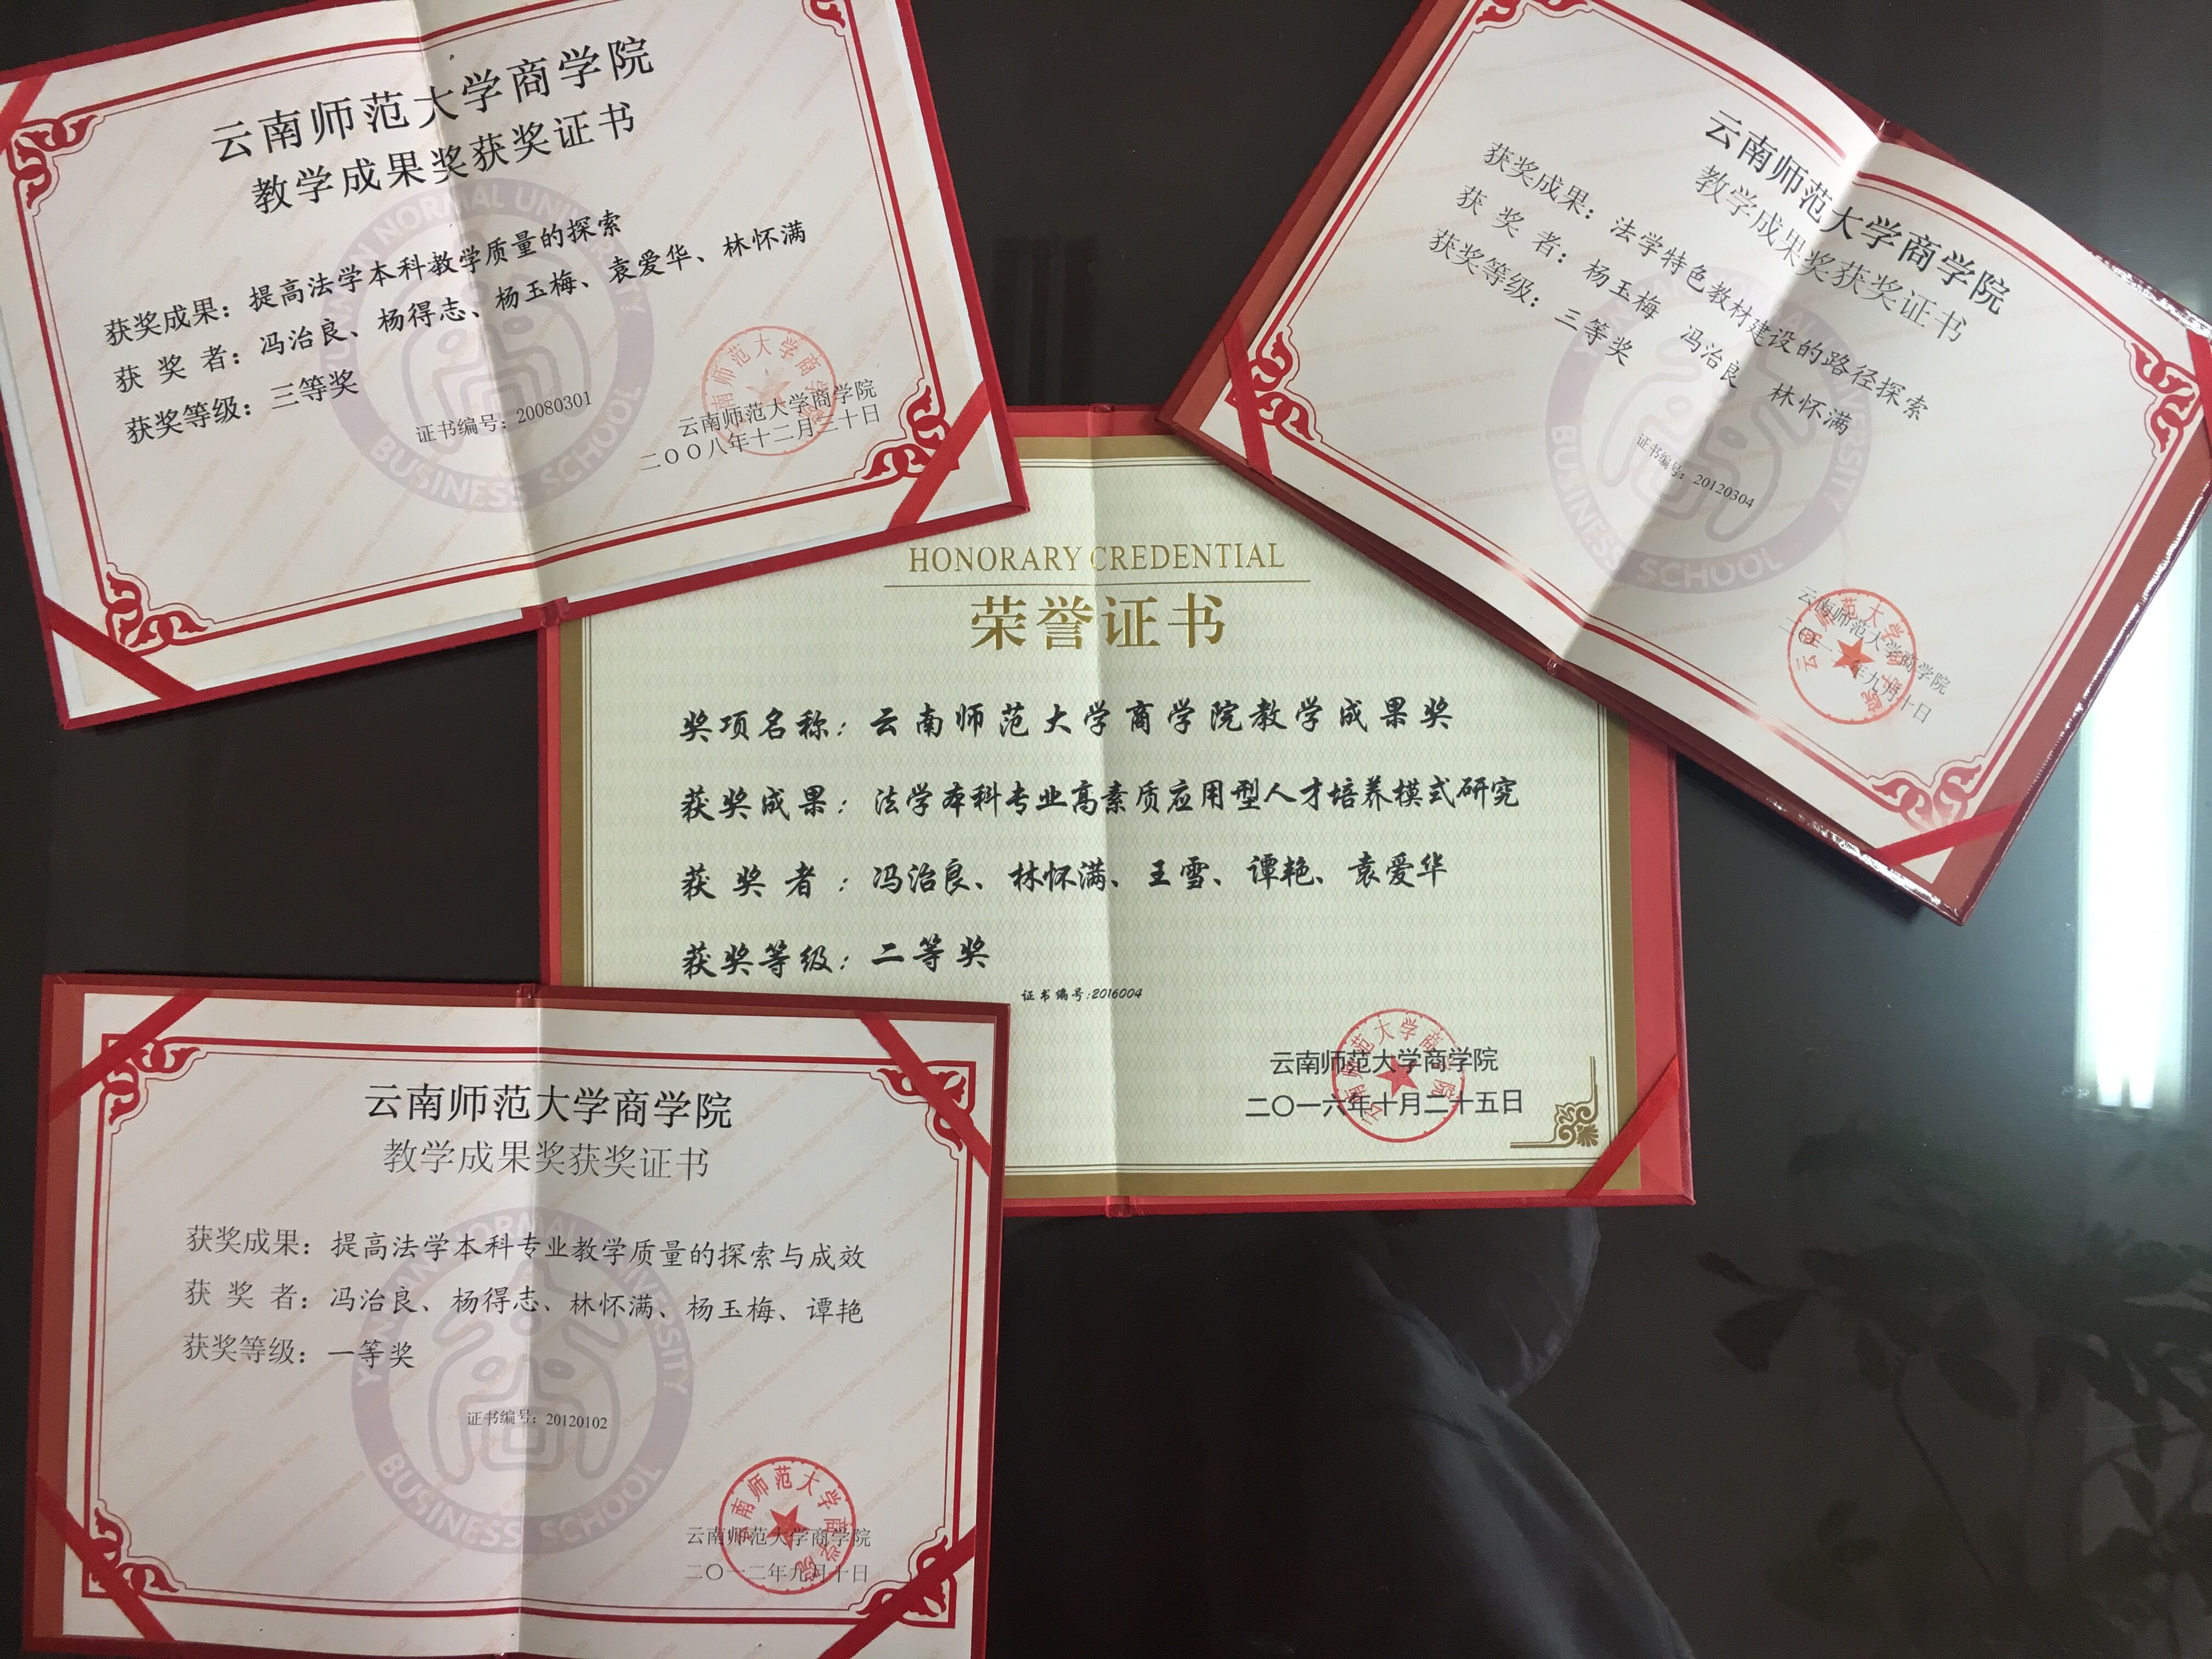 云南师范大学商学院
教学成果奖获奖证书
获奖成果：提高法学本科教学质量的探索
获 奖 者：冯治良、杨得志、杨玉梅、袁爱华、林怀满
获奖等级：三等奖
证书编号：20080301
云南师范大学商学院
二〇〇八年十二月三十日
YUNNAN NORMAL UNIVERSITY
BUSINESS SCHOOL
云南师范大学商学院
教学成果奖获奖证书
获奖成果：法学特色教材建设的路径探索
获 奖 者：杨玉梅 冯治良 林怀满
获奖等级：三等奖
证书编号：20120304
云南师范大学商学院
二〇一二年九月十日
BUSINESS SCHOOL
HONORARY CREDENTIAL
荣誉证书
奖项名称：云南师范大学商学院教学成果奖
获奖成果：法学本科专业高素质应用型人才培养模式研究
获 奖 者：冯治良、林怀满、王雪、谭艳、袁爱华
获奖等级：二等奖
证书编号:2016004
云南师范大学商学院
二〇一六年十月二十五日
云南师范大学商学院
教学成果奖获奖证书
获奖成果：提高法学本科专业教学质量的探索与成效
获 奖 者：冯治良、杨得志、林怀满、杨玉梅、谭艳
获奖等级：一等奖
证书编号：20120102
云南师范大学商学院
二〇一二年九月十日
YUNNAN NORMAL UNIVERSITY
BUSINESS SCHOOL